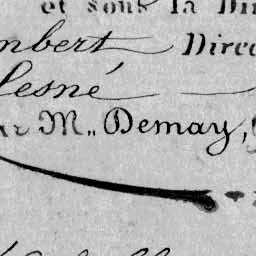 et sous la
mbert Direc
lesné
M.. Demay,